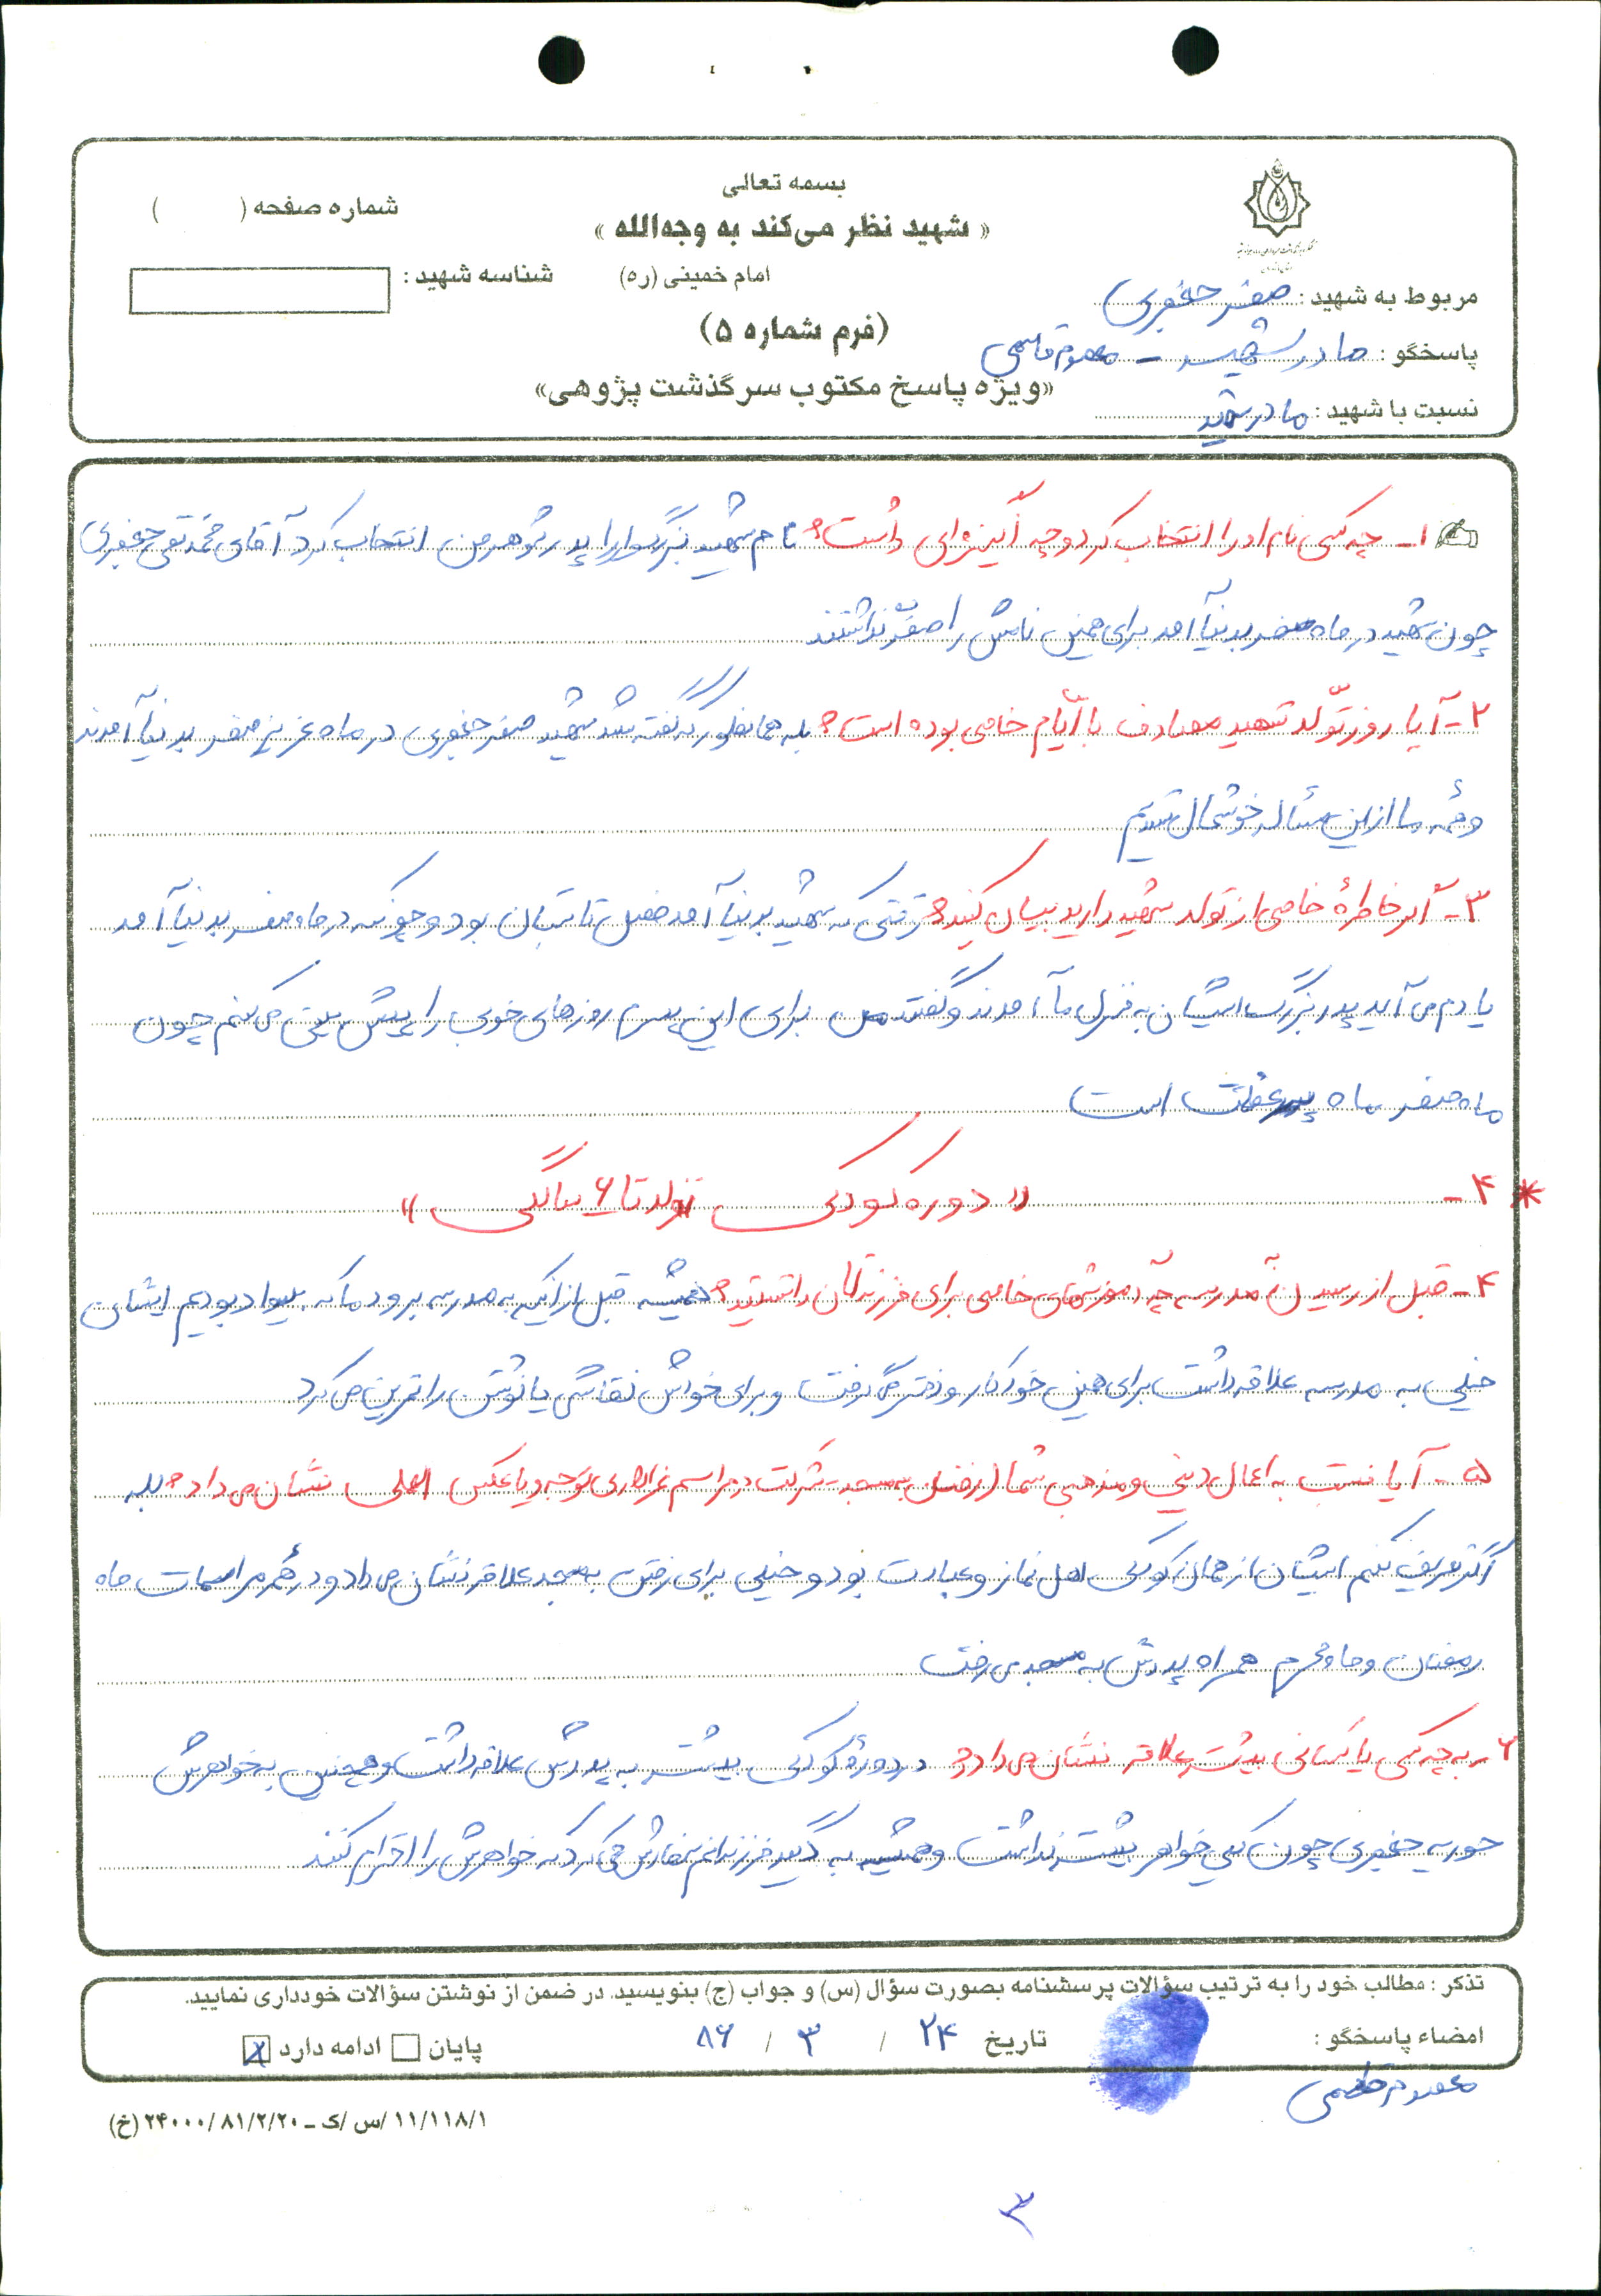 بسمه تعالی
« شهید نظر می‌کند به وجه‌الله »
امام خمینی (ره)
(فرم شماره ۵)
«ویژه پاسخ مکتوب سرگذشت پژوهی»
شماره صفحه ( )
شناسه شهید :
مربوط به شهید : صفر جعفری
پاسخگو : مادر شهید - معصومه قاسمی
نسبت با شهید : مادر شهید
۱- چه کسی نام او را انتخاب کرد و چه انگیزه‌ای داشت؟ نام شهید بزرگوار را پدر شوهر من انتخاب کرد آقای محمد تقی جعفری
چون شهید در ماه صفر بدنیا آمد برای همین نامش را صفر گذاشتند
۲- آیا روز تولد شهید مصادف با ایّام خاصی بوده است؟ بله همانطور که گفته شد شهید صفر جعفری در ماه عزیز صفر بدنیا آمدند
و همه ما از این مسأله خوشحال شدیم
۳- اگر خاطرهٔ خاصی از تولد شهید دارید بیان کنید؟ وقتی که شهید بدنیا آمد فصل تابستان بود و چونکه در ماه صفر بدنیا آمد
یادم می آید پدر بزرگ ایشان به منزل ما آمدند و گفتند من برای این پسرم روزهای خوبی را پیش بینی می کنم چون
ماه صفر ماه پر عظمت است
* ۴- « دوره کودکی تولد تا ۶ سالگی »
۴- قبل از رسیدن به مدرسه چه آموزشهای خاصی برای فرزندتان داشتید؟ همیشه قبل از اینکه به مدرسه برود ما که بیسواد بودیم ایشان
خیلی به مدرسه علاقه داشت برای همین خودکار و دفتر می گرفت و برای خودش نقاشی یا نوشتن را تمرین می کرد
۵- آیا نسبت به اعمال دینی و مذهبی شما (رفتن به مسجد- شرکت در مراسم عزاداری) توجه و یا عکس العملی نشان می داد؟ بله
اگر تعریف نکنم ایشان از همان کودکی اهل نماز و عبادت بود و خیلی برای رفتن به مسجد علاقه نشان می داد و در همه مراسمات ماه
رمضان و ماه محرم همراه پدرش به مسجد می رفت
۶- به چه کسی یا کسانی بیشتر علاقه نشان می داد؟ در دورهٔ کودکی بیشتر به پدرش علاقه داشت و همچنین به خواهرش
حوریه جعفری چون یکی خواهر بیشتر نداشت و همیشه به دیگر فرزندانم سفارش می کرد که خواهرش را احترام کنند
تذکر : مطالب خود را به ترتیب سؤالات پرسشنامه بصورت سؤال (س) و جواب (ج) بنویسید. در ضمن از نوشتن سؤالات خودداری نمایید.
امضاء پاسخگو : تاریخ ۲۴ / ۳ / ۸۶ پایان ادامه دارد
معصومه قاسمی
۱۱/۱۱۸/۱ /س /ک - ۲۴۰۰۰/۸۱/۲/۲۰ (خ)
۳